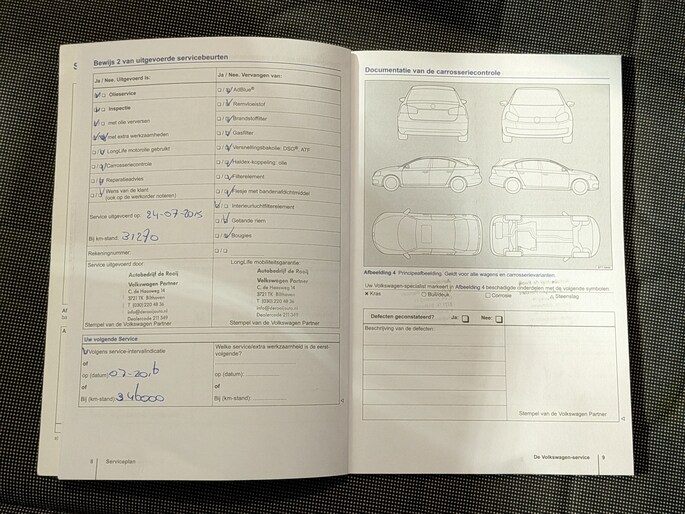 Bewijs 2 van uitgevoerde servicebeurten
Ja / Nee. Uitgevoerd is:
Olieservice
Inspectie
met olie verversen
met extra werkzaamheden
LongLife motorolie gebruikt
Carrosseriecontrole
Reparatieadvies
Wens van de klant
(ook op de werkorder noteren)
Service uitgevoerd op: 24-07-2015
Bij km-stand: 31270
Rekeningnummer:
Service uitgevoerd door:
Autobedrijf de Rooij
Volkswagen Partner
C. de Haasweg 14
3721 TK Bilthoven
T (030) 220 48 56
Dealercode 211 349
Stempel van de Volkswagen Partner
Ja / Nee. Vervangen van:
AdBlue®
Remvloeistof
Brandstoffilter
Gasfilter
Versnellingsbakolie: DSG®, ATF
Haldex-koppeling: olie
Filterelement
Flesje met bandenafdichtmiddel
Interieurluchtfilterelement
Getande riem
Bougies
LongLife mobiliteitsgarantie:
Autobedrijf de Rooij
Volkswagen Partner
C. de Haasweg 14
3721 TK Bilthoven
T (030) 220 48 56
Dealercode 211 349
Stempel van de Volkswagen Partner
Uw volgende Service
Volgens service-intervalindicatie
of
op (datum):
of
Bij (km-stand):
Welke service/extra werkzaamheid is de eerst-
volgende?
op (datum):
of
Bij (km-stand):
8 Serviceplan
Documentatie van de carrosseriecontrole
Afbeelding 4 Principeafbeelding. Geldt voor alle wagens en carrosserievarianten.
Uw Volkswagen-specialist markeert in Afbeelding 4 beschadigde onderdelen met de volgende symbolen:
Kras Buil/deuk Corrosie Steenslag
Defecten geconstateerd? Ja: Nee:
Beschrijving van de defecten:
Stempel van de Volkswagen Partner
De Volkswagen-service 9